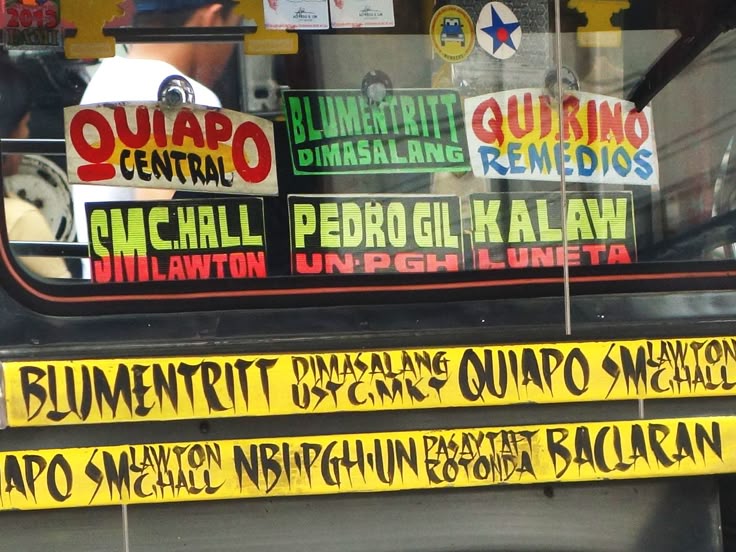 2015
QUIAPO
CENTRAL
BLUMENTRITT
DIMASALANG
QUIRINO
REMEDIOS
SM C.HALL
LAWTON
PEDRO GIL
UN·PGH
KALAW
LUNETA
BLUMENTRITT DIMASALANG UST C.MKT QUIAPO SM LAWTON C.HALL
APO SM LAWTON C.HALL NBI·PGH·UN PASAY TAFT ROTONDA BACLARAN